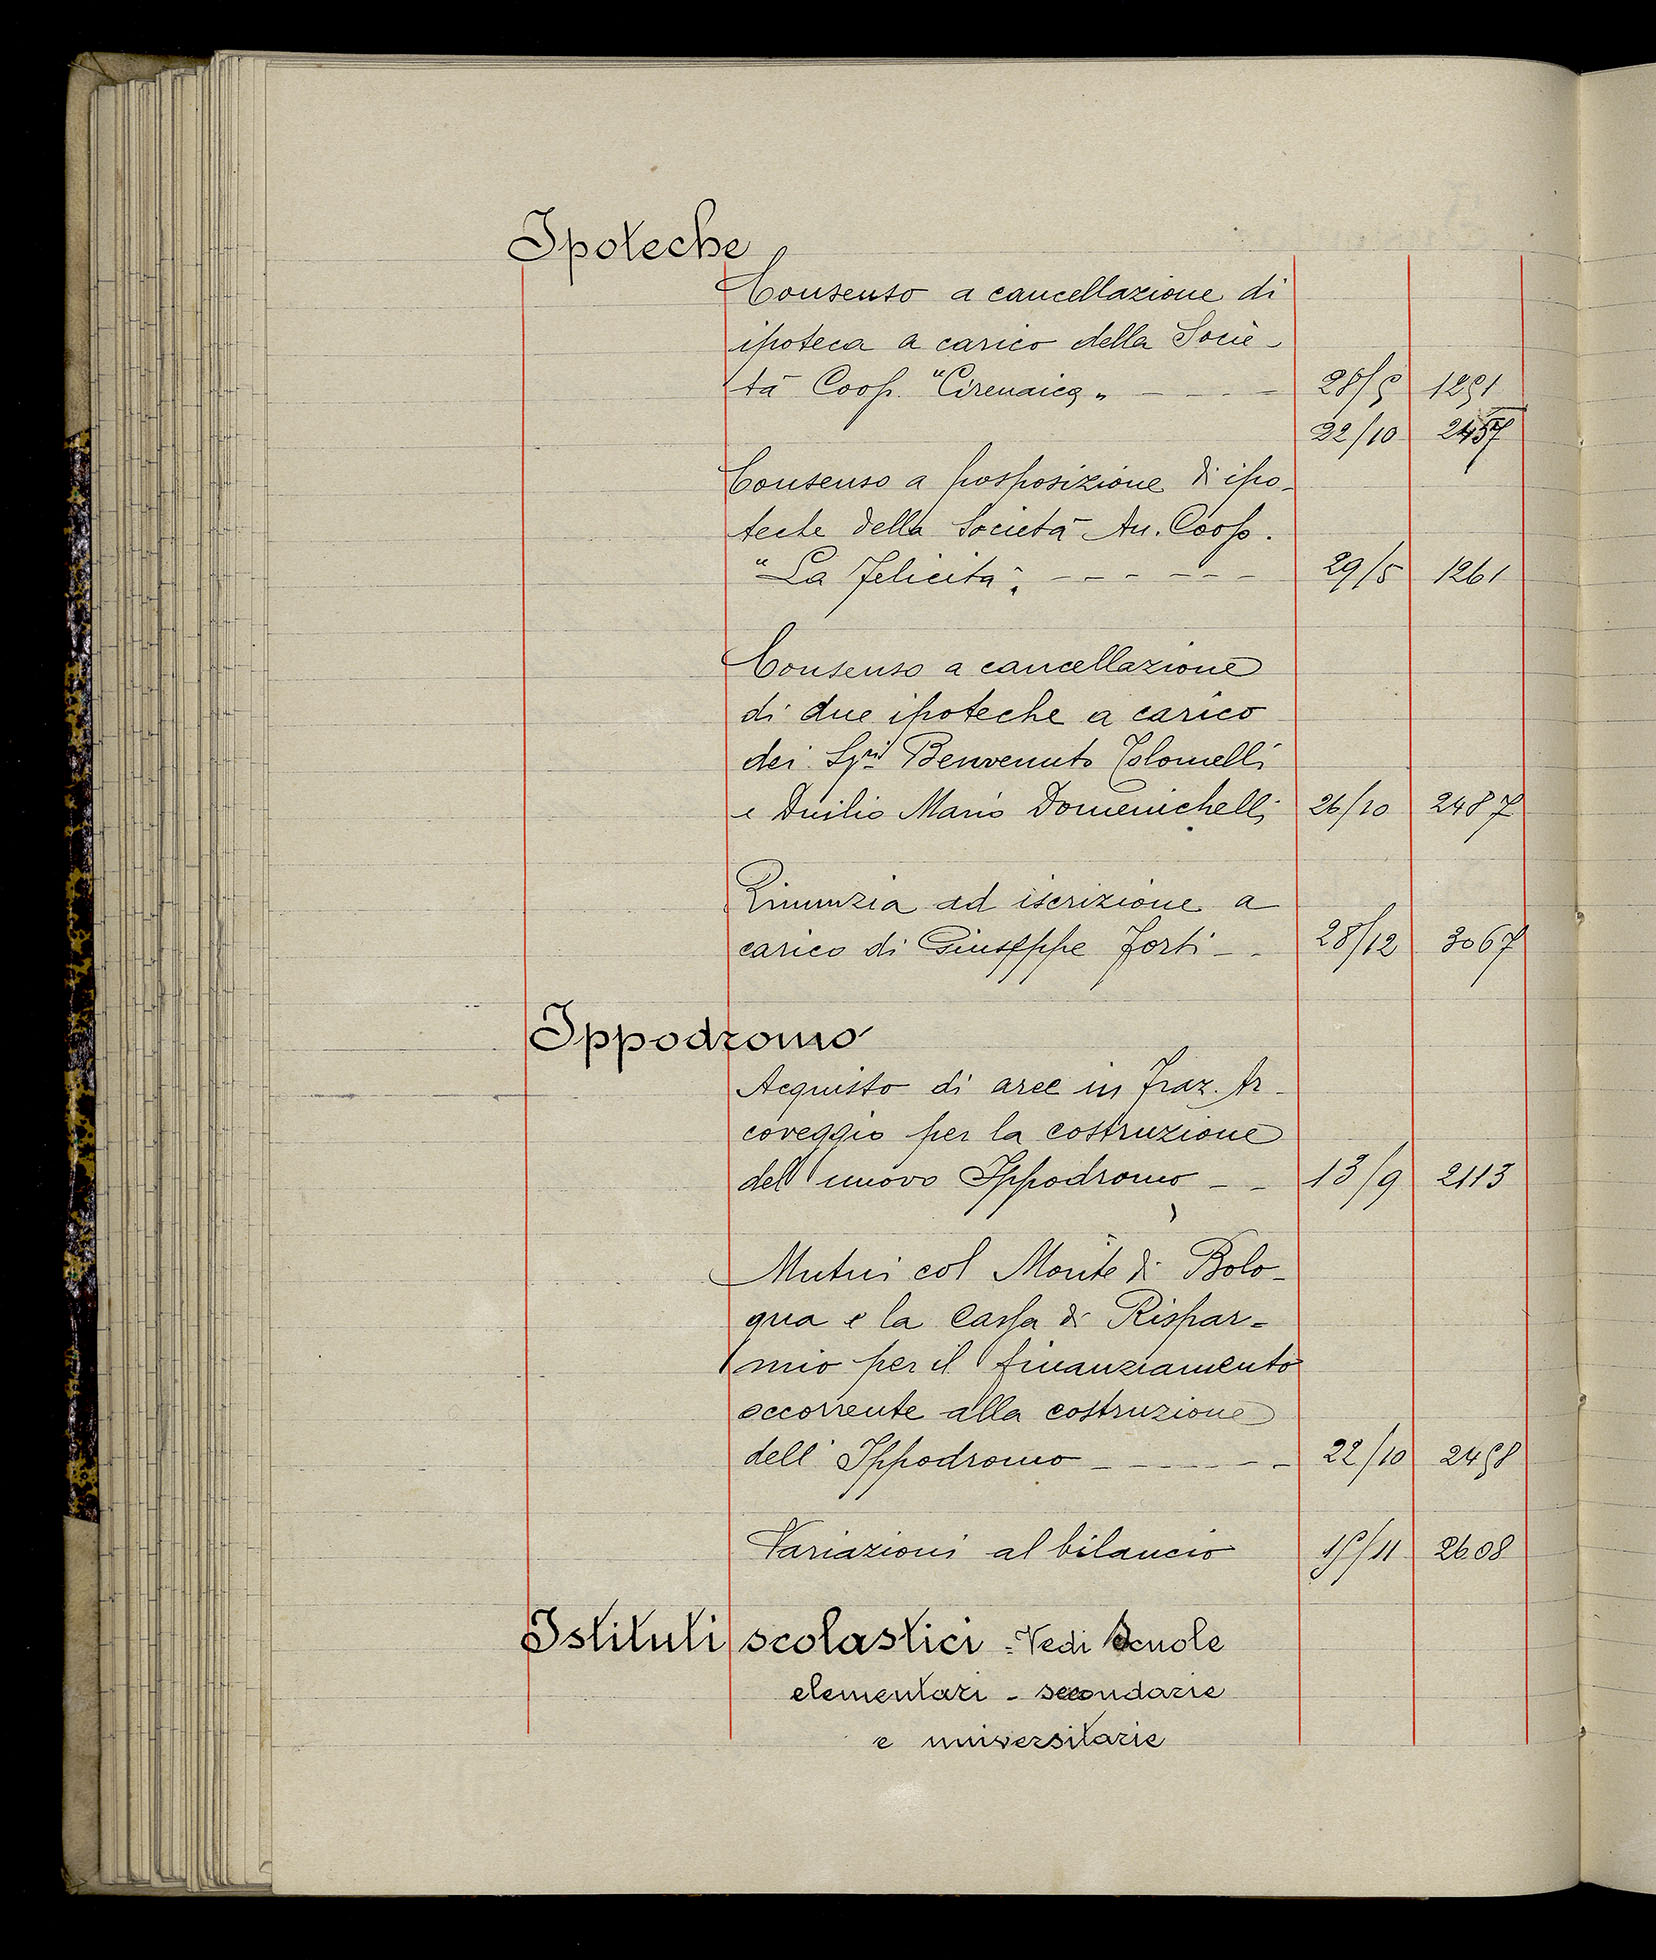 Ipoteche
Consenso a cancellazione di
ipoteca a carico della Socie-
tà Coop. "Cirenaica" - - - - 28/5 1251
22/10 2457
Consenso a posposizione di ipo-
teche della Società An. Coop.
"La Felicità" - - - - - - 29/5 1261
Consenso a cancellazione
di due ipoteche a carico
dei Sgri Benvenuto Colomelli
e Duilio Mario Domenichelli 26/10 2487
Rinunzia ad iscrizione a
carico di Giuseppe Forti - - 28/12 3067
Ippodromo
Acquisto di aree in Fraz. Ar-
coveggio per la costruzione
del nuovo Ippodromo - - 13/9 2113
Mutui col Monte di Bolo-
gna e la Cassa di Rispar-
mio per il finanziamento
occorrente alla costruzione
dell'Ippodromo - - - - - - 22/10 2458
Variazioni al bilancio 15/11 2608
Istituti scolastici - Vedi Scuole
elementari - secondarie
e universitarie